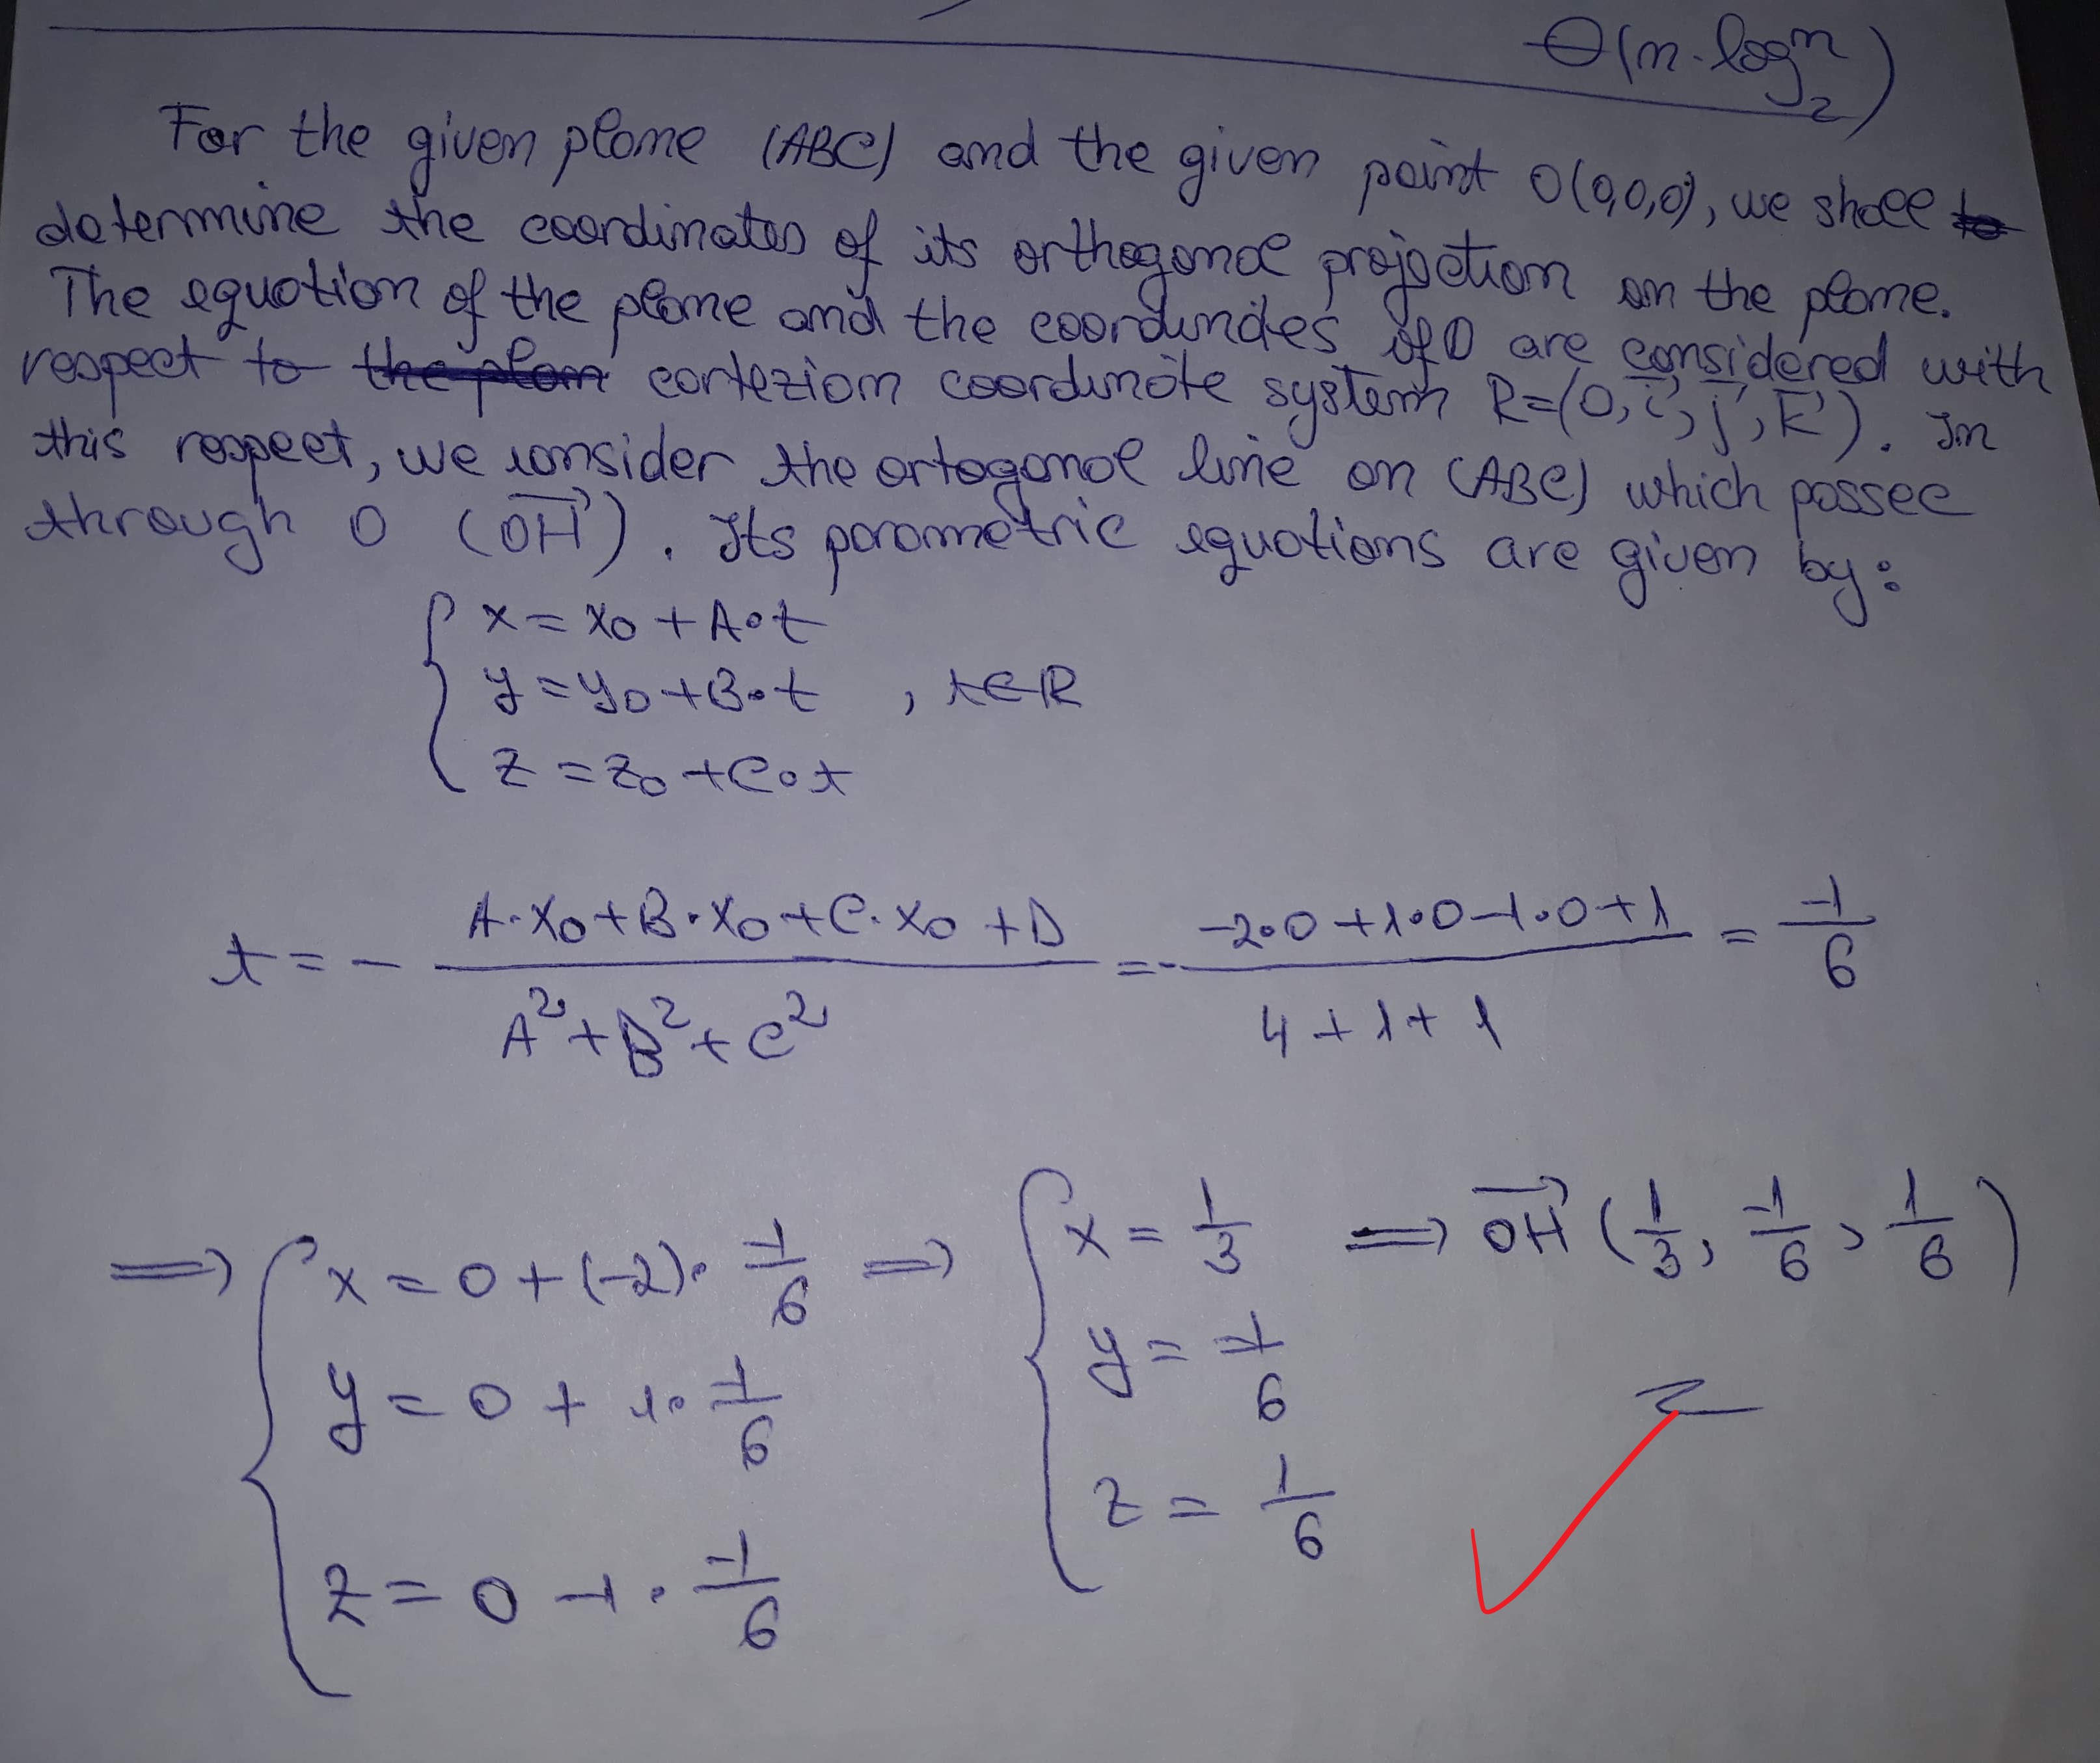 Θ(n·log₂ⁿ)
For the given plane (ABC) and the given point O(0,0,0), we shall to
determine the coordinates of its orthogonal projection on the plane.
The equation of the plane and the coordindes of O are considered with
respect to the plan cartezian coordinate system R=(O, i⃗, j⃗, k⃗). In
this respect, we consider the ortogonal line on (ABC) which passec
through O (OH⃗). Its parametric equations are given by:
{ x = x₀ + A·t
y = y₀ + B·t , t∈R
z = z₀ + C·t
t = - (A·x₀ + B·x₀ + C·x₀ + D)/(A² + B² + C²) = - (-2·0 + 1·0 - 1·0 + 1)/(4 + 1 + 1) = -1/6
⟹ { x = 0 + (-2)· -1/6 ⟹ { x = 1/3 ⟹ OH⃗ (1/3, -1/6, 1/6)
y = 0 + 1· -1/6 y = -1/6
z = 0 - 1· -1/6 z = 1/6